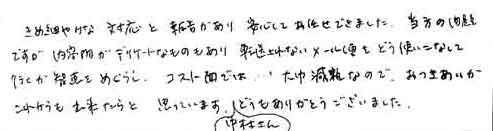 きめ細やかな 対応と 報告があり 安心してお任せできました。当方の問題
ですが 内容物がデリケートなものもあり 転送されないメール便をどう使いこなして
行くか 知恵をめぐらし、コスト面では… だいぶ減額なので、おつきあいが
これからも 出来たらと 思っています。どうもありがとうございました。
中村さん